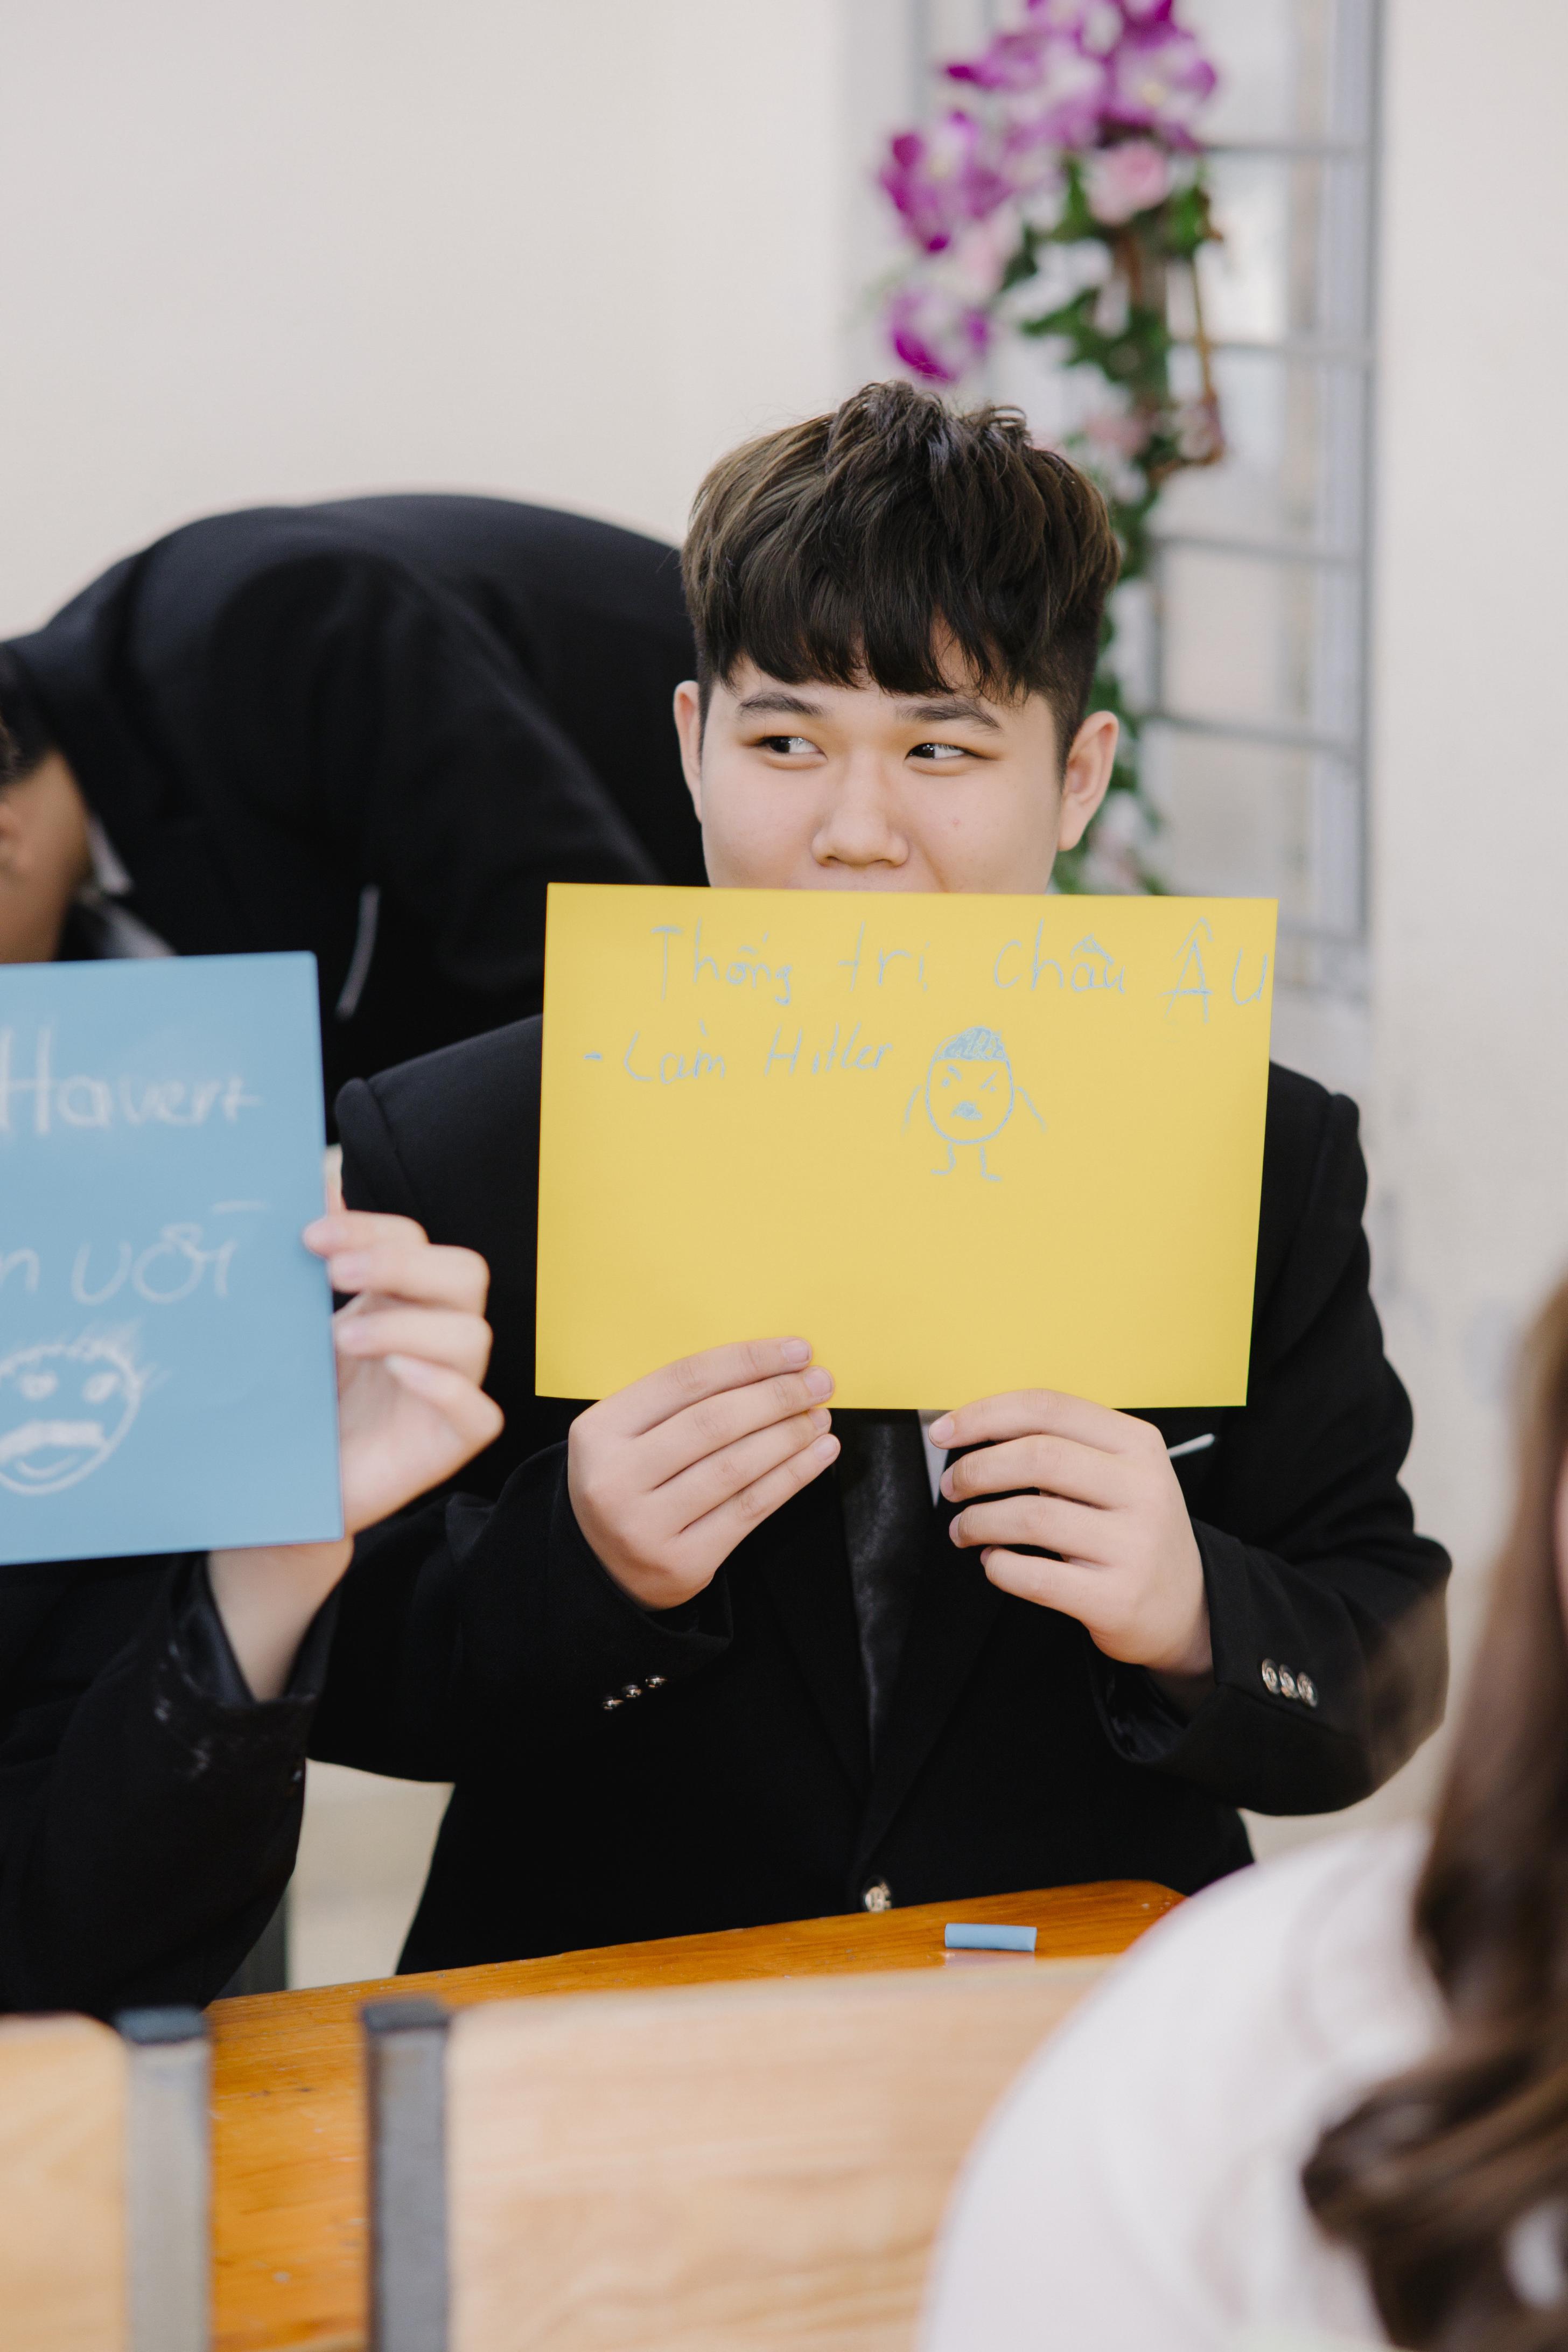 Havert
với
Thống trị châu ÂU
- Làm Hitler